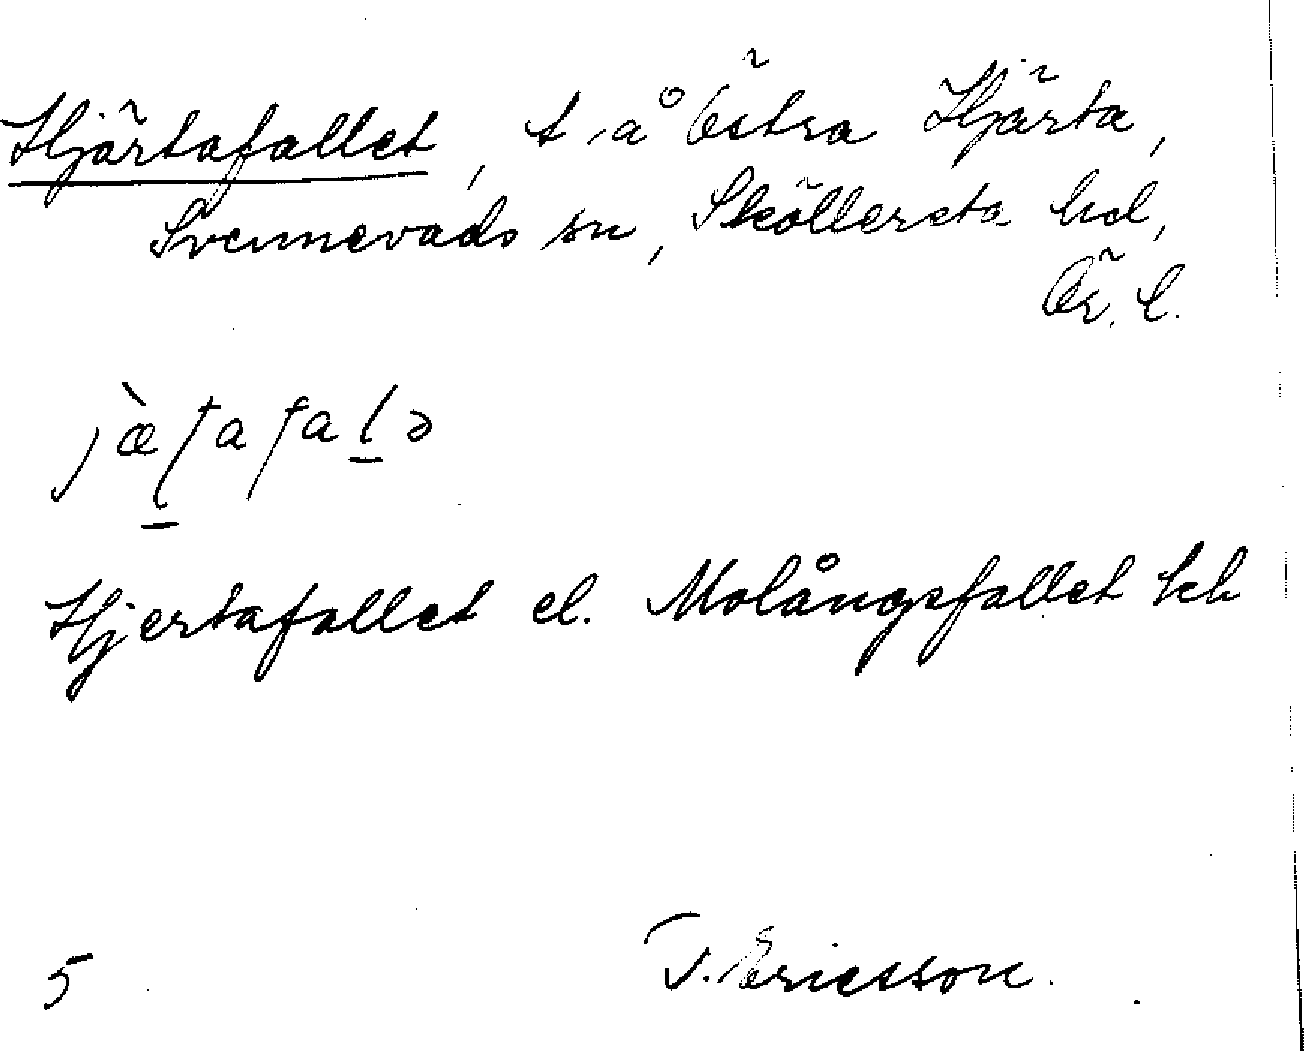 Hjärtafallet, t. å Östra Hjärta,
Svennevads sn, Sköllersta hd,
Ör. l.
jæ̀ʈafaḻə
Hjertafallet el. Molångsfallet hch
5
T. Ericsson.